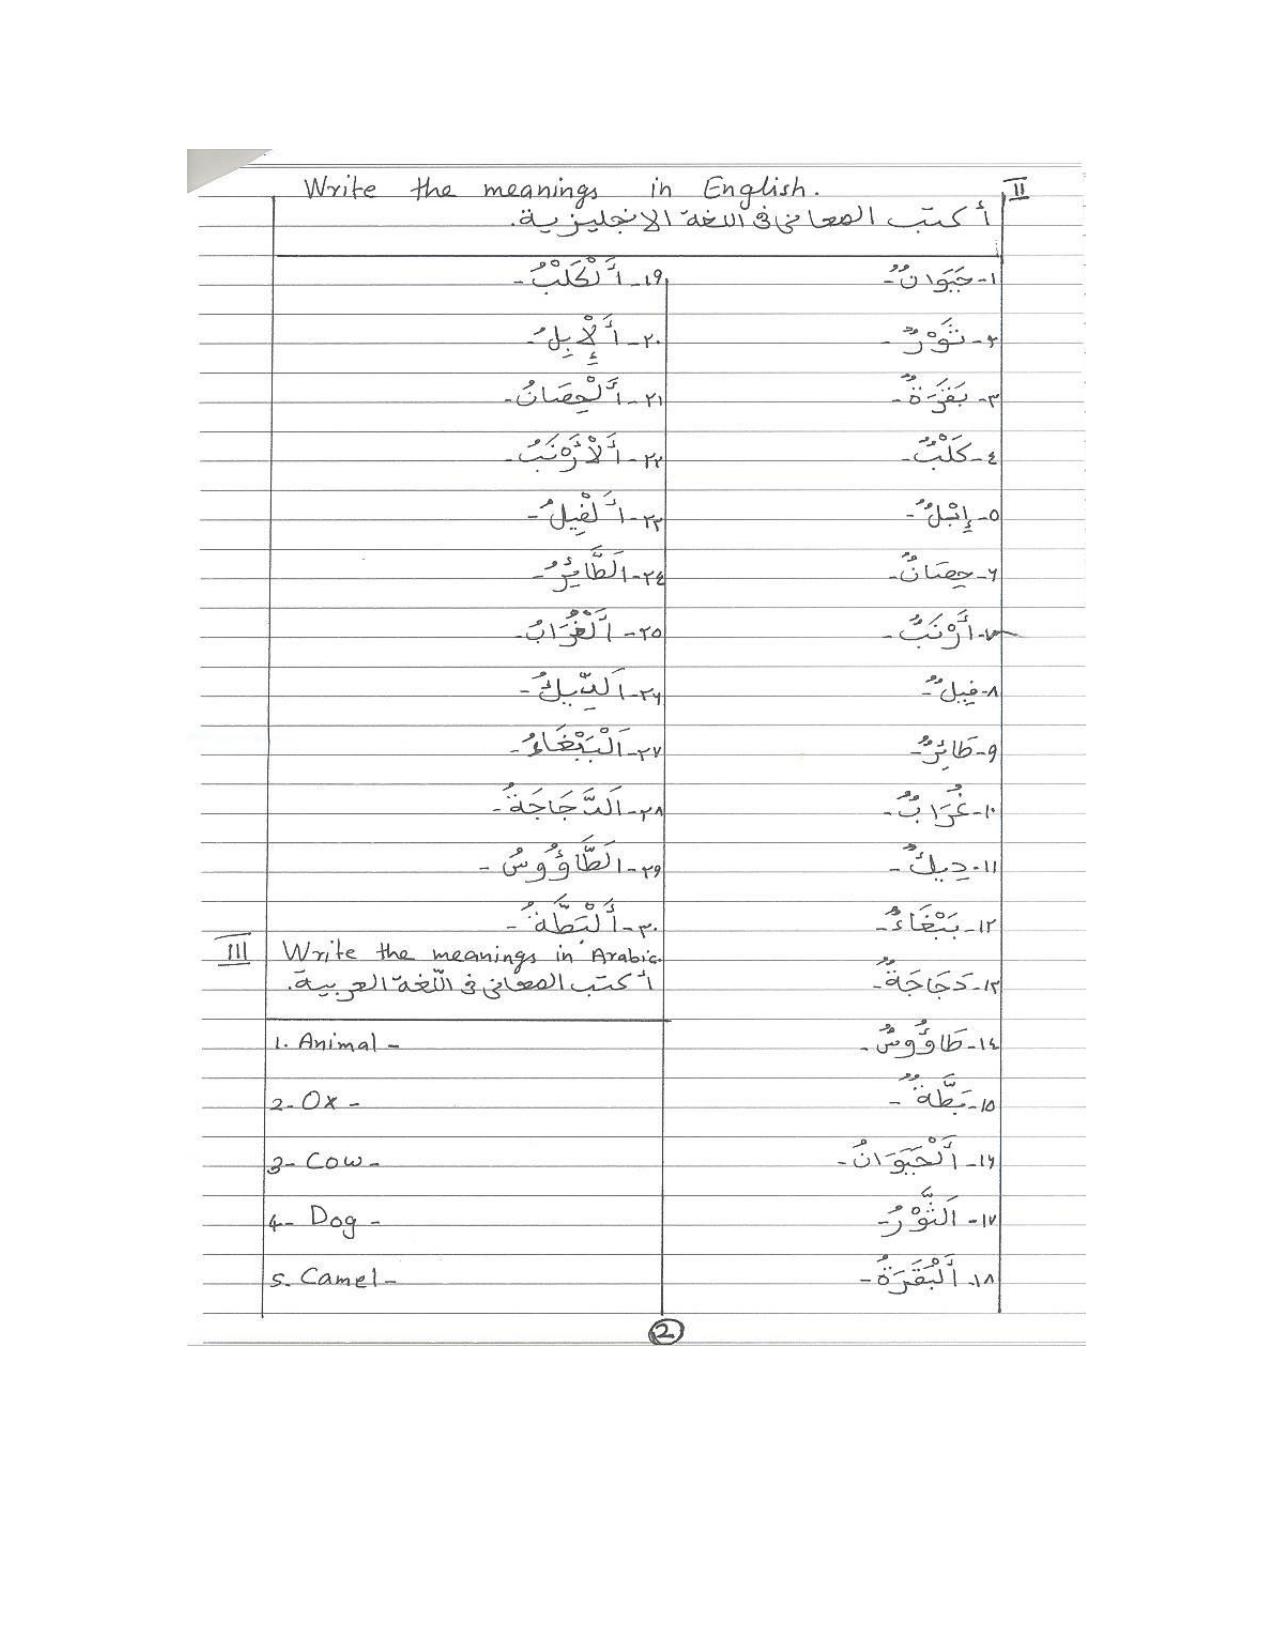 II
Write the meanings in English.
أكتب المعانى فى اللغة الانجليزية.
١- حَيَوَانٌ -
٢- ثَوْرٌ -
٣- بَقَرَةٌ -
٤- كَلْبٌ -
٥- إِبْلٌ -
٦- حِصَانٌ -
٧- أَرْنَبٌ -
٨- فِيلٌ -
٩- طَائِرٌ -
١٠- غُرَابٌ -
١١- دِيكٌ -
١٢- بَبْغَاءٌ -
١٣- دَجَاجَةٌ -
١٤- طَاؤُوسٌ -
١٥- بَطَّةٌ -
١٦- أَلْحَيَوَانُ -
١٧- اَلثَّوْرُ -
١٨- أَلْبَقَرَةُ -
١٩- أَلْكَلْبُ -
٢٠- أَلْإِبِلُ -
٢١- أَلْحِصَانُ -
٢٢- أَلْأَرْنَبُ -
٢٣- أَلْفِيلُ -
٢٤- اَلطَّائِرُ -
٢٥- أَلْغُرَابُ -
٢٦- اَلدِّيكُ -
٢٧- اَلْبَبْغَاءُ -
٢٨- اَلدَّجَاجَةُ -
٢٩- اَلطَّاؤُوسُ -
٣٠- أَلْبَطَّةُ -
III
Write the meanings in Arabic.
أكتب المعانى فى اللّغة العربية.
1. Animal -
2- Ox -
3- Cow -
4- Dog -
5. Camel -
2